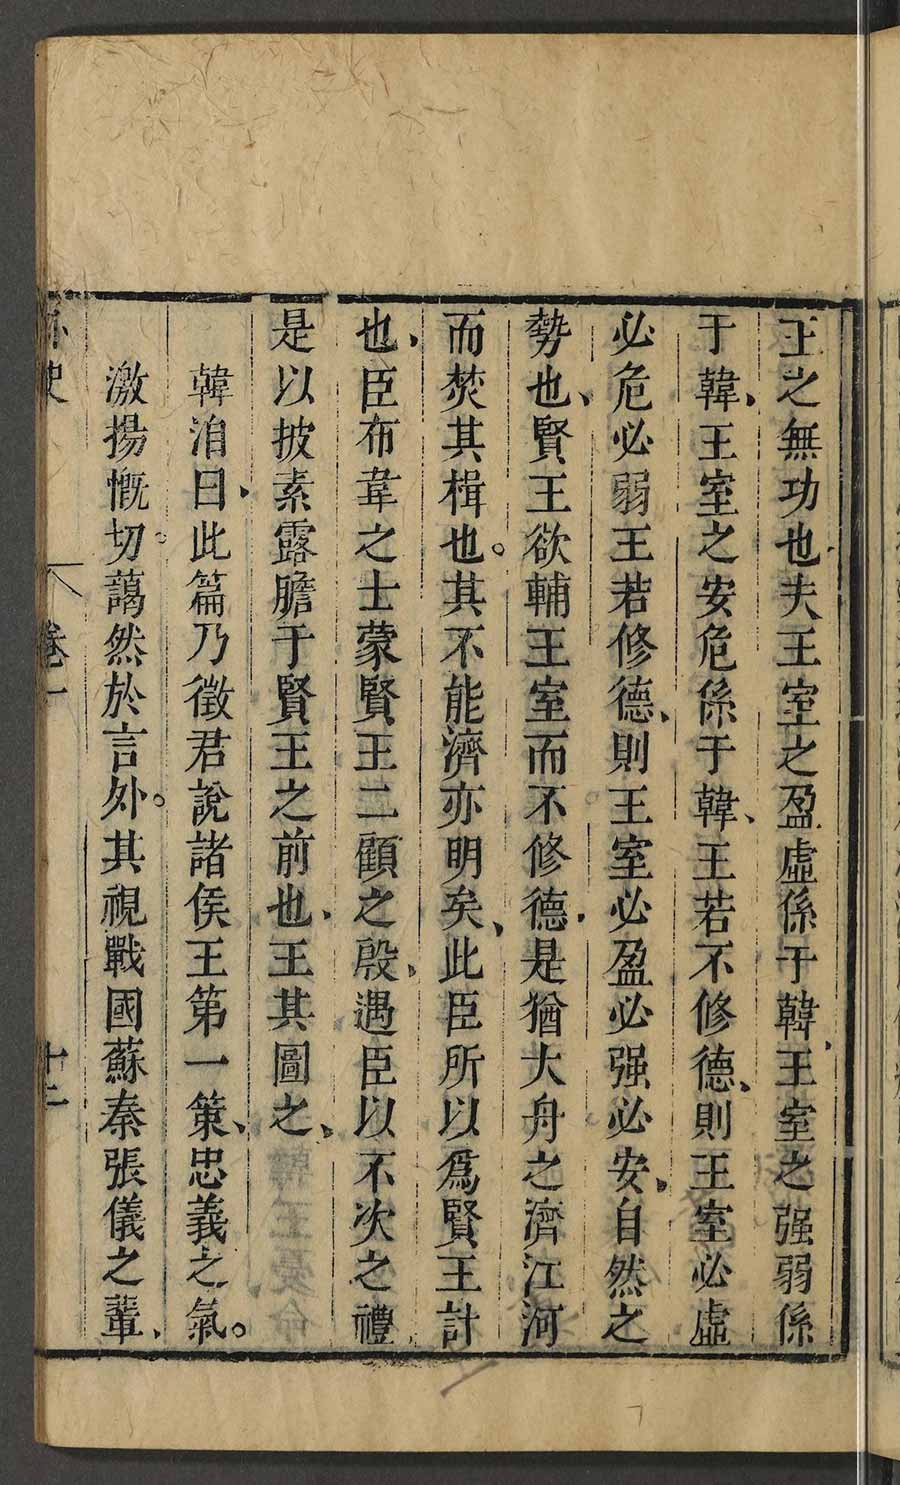 王之無功也夫王室之盈虛係于韓、王室之强弱係
于韓、王室之安危係于韓、王若不修德、則王室必虛
必危必弱王若修德、則王室必盈必强必安、自然之
勢也、賢王欲輔王室而不修德、是猶大舟之濟江河
而焚其楫也。其不能濟亦明矣、此臣所以爲賢王計
也、臣布韋之士蒙賢王二顧之殷、遇臣以不次之禮
是以披素露膽于賢王之前也、王其圖之、
韓洎曰、此篇乃徵君說諸侯王第一策、忠義之氣。
激揚慨切。藹然於言外。其視戰國蘇秦張儀之輩、
史
卷一